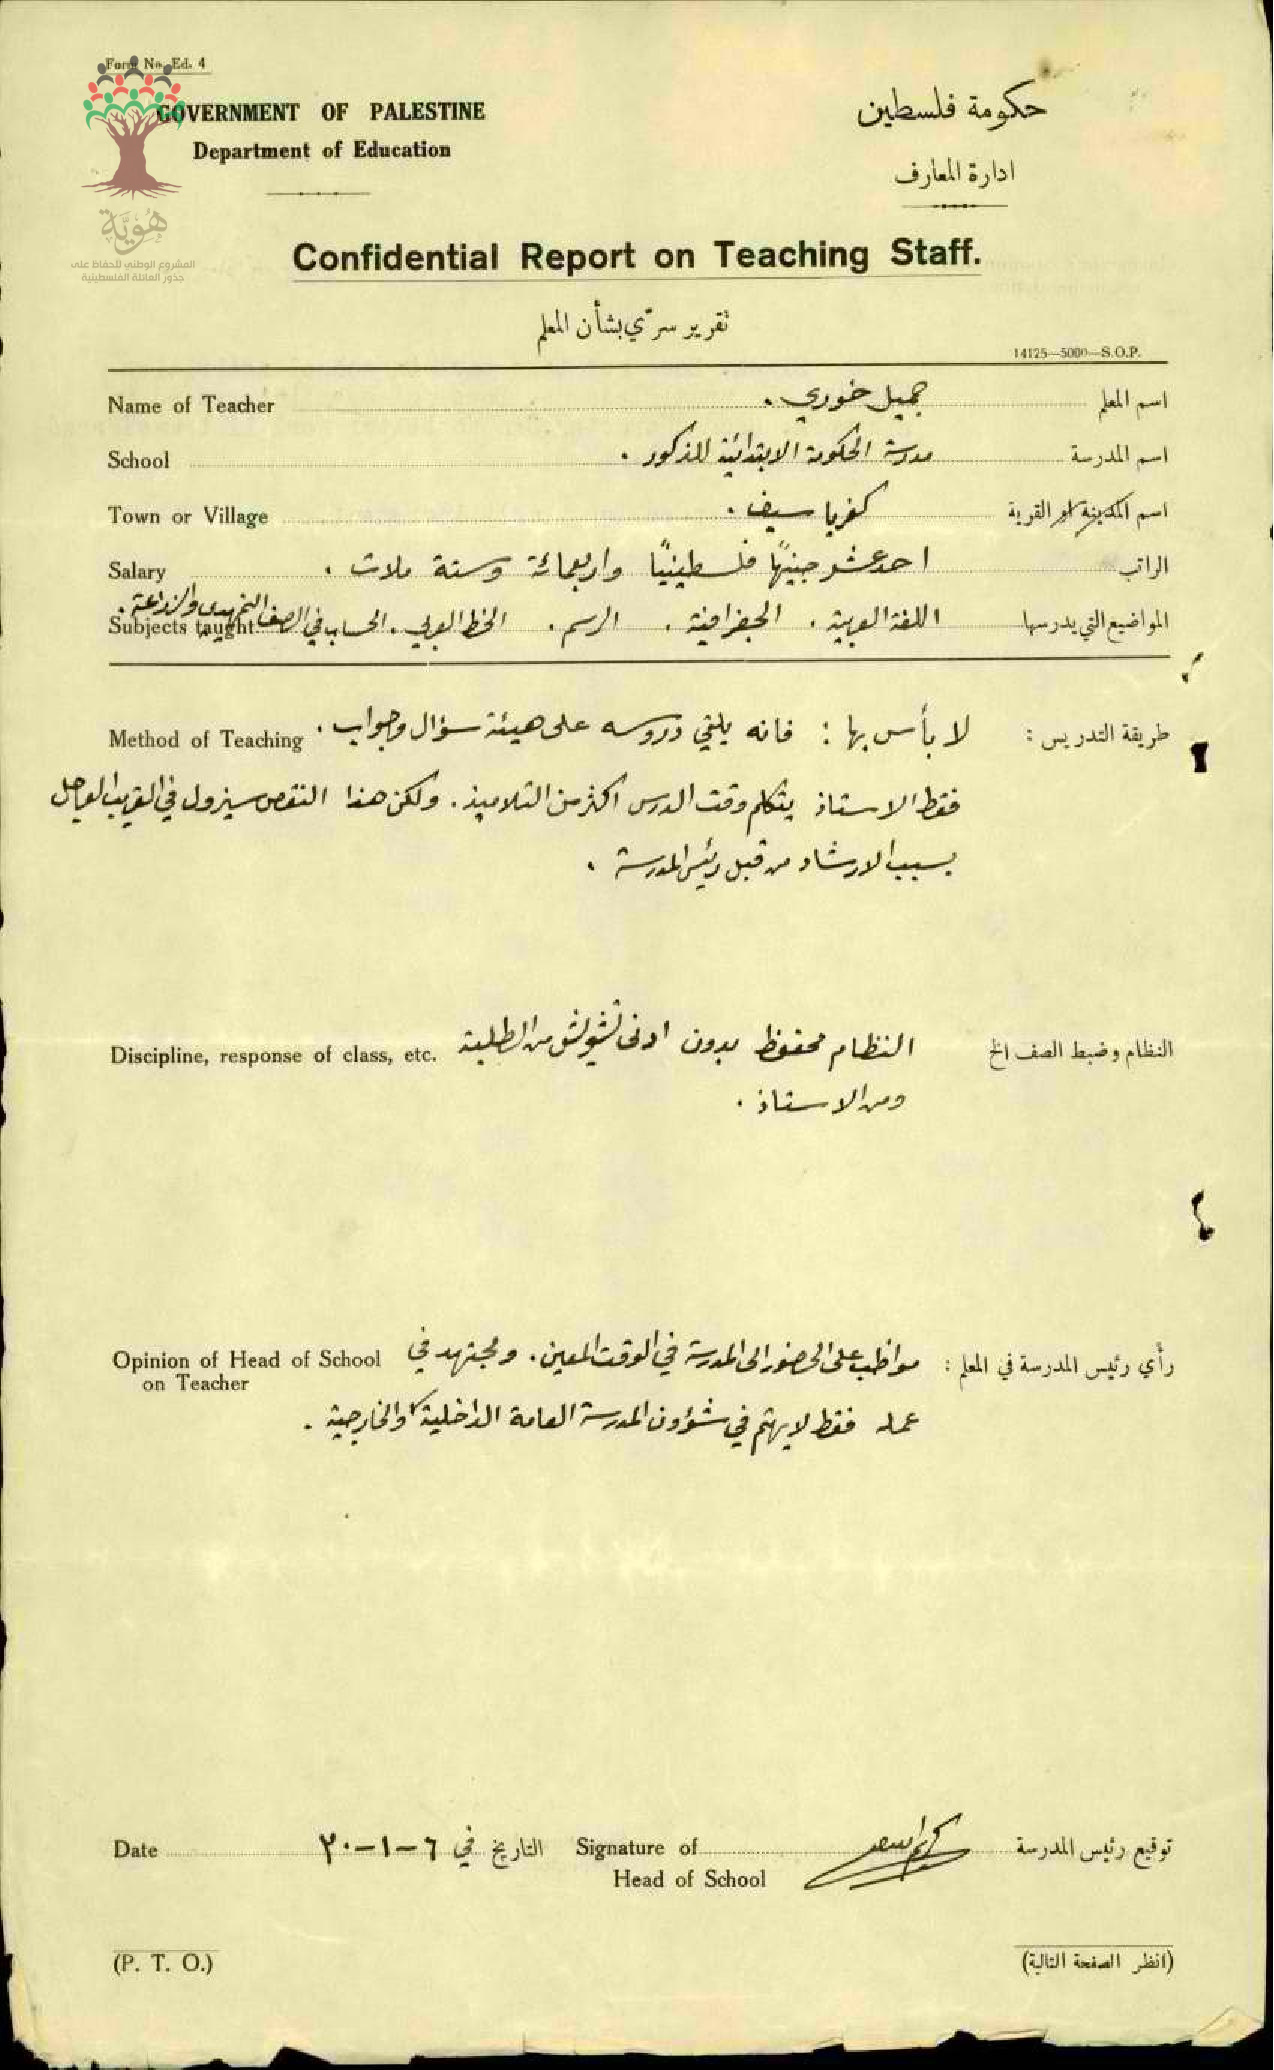 Form No. Ed. 4
GOVERNMENT OF PALESTINE
Department of Education
حكومة فلسطين
ادارة المعارف
هُويَّة
المشروع الوطني للحفاظ على
جذور العائلة الفلسطينية
Confidential Report on Teaching Staff.
تقرير سرّي بشأن المعلم
14125—5000—S.O.P.
Name of Teacher جميل خوري . اسم المعلم
School مدرسة الحكومة الابتدائية للذكور . اسم المدرسة
Town or Village كفر ياسيف . اسم المدينة او القرية
Salary احد عشر جنيهًا فلسطينيًا واربعمائة وستة ملات . الراتب
Subjects taught اللغة العربية . الجغرافية . الرسم . الخط العربي . الحساب في الصف التمهيدي والزراعة . المواضيع التي يدرسها
Method of Teaching لا بأس بها : فانه يلقي دروسه على هيئة سؤال وجواب . طريقة التدريس :
فقط الاستاذ يتكلم وقت الدرس اكثر من التلاميذ . ولكن هذا النقص سيزول في القريب العاجل
بسبب الارشاد من قبل رئيس المدرسة .
Discipline, response of class, etc. النظام محفوظ بدون ادنى تشويش من الطلبة النظام وضبط الصف الخ
ومن الاستاذ .
Opinion of Head of School مواظب على الحضور الى المدرسة في الوقت المعين . ومجتهد في رأي رئيس المدرسة في المعلم :
on Teacher
عمله فقط لا يهتم في شؤون المدرسة العامة الداخلية والخارجية .
Date ٣٠-١-٦ التاريخ في Signature of توقيع رئيس المدرسة
Head of School
(P. T. O.) (انظر الصفحة التالية)